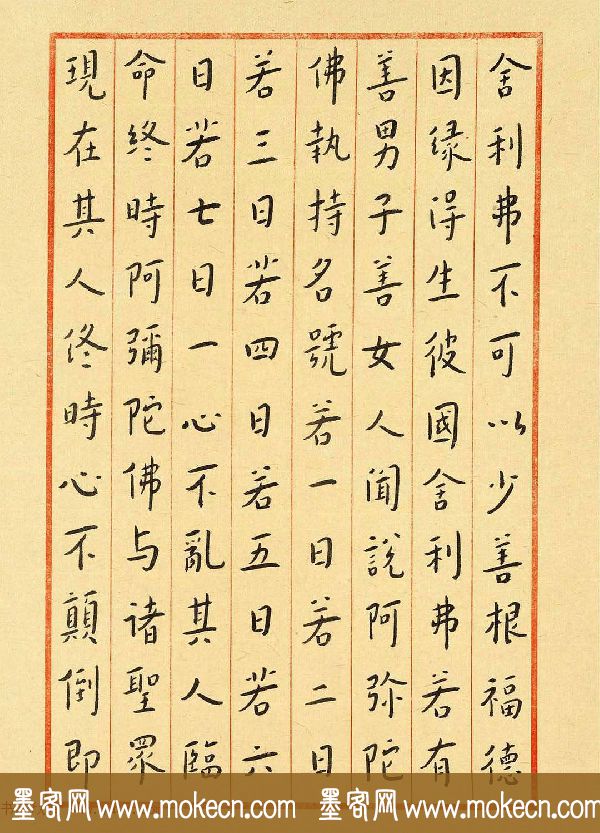 舍利弗不可以少善根福德
因緣得生彼國舍利弗若有
善男子善女人聞說阿弥陀
佛執持名號若一日若二日
若三日若四日若五日若六
日若七日一心不亂其人臨
命終時阿彌陀佛与諸聖眾
現在其人終時心不顛倒即
墨客网 www.mokecn.com 墨客网 www.mokecn.com